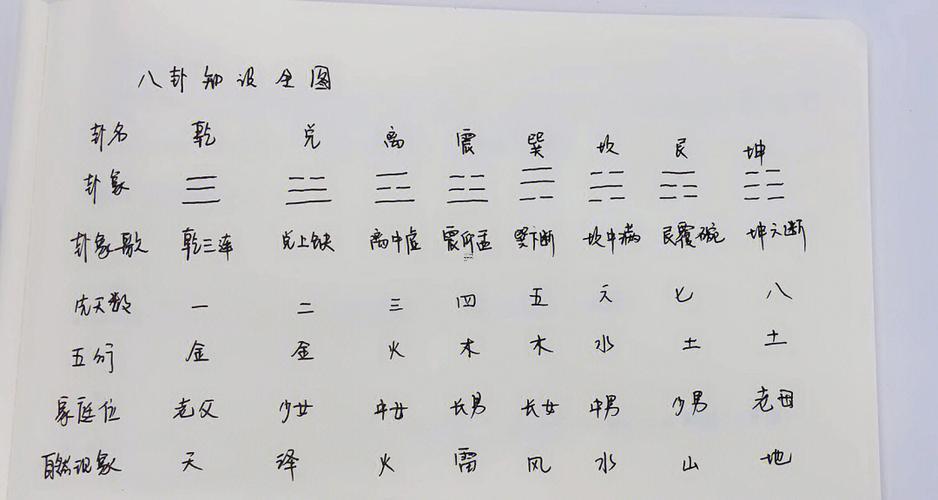 八卦知识全图
卦名 乾 兑 离 震 巽 坎 艮 坤
卦象 ☰ ☱ ☲ ☳ ☴ ☵ ☶ ☷
卦象歌 乾三连 兑上缺 离中虚 震仰盂 巽下断 坎中满 艮覆碗 坤六断
先天数 一 二 三 四 五 六 七 八
五行 金 金 火 木 木 水 土 土
家庭位 老父 少女 中女 长男 长女 中男 少男 老母
自然现象 天 泽 火 雷 风 水 山 地